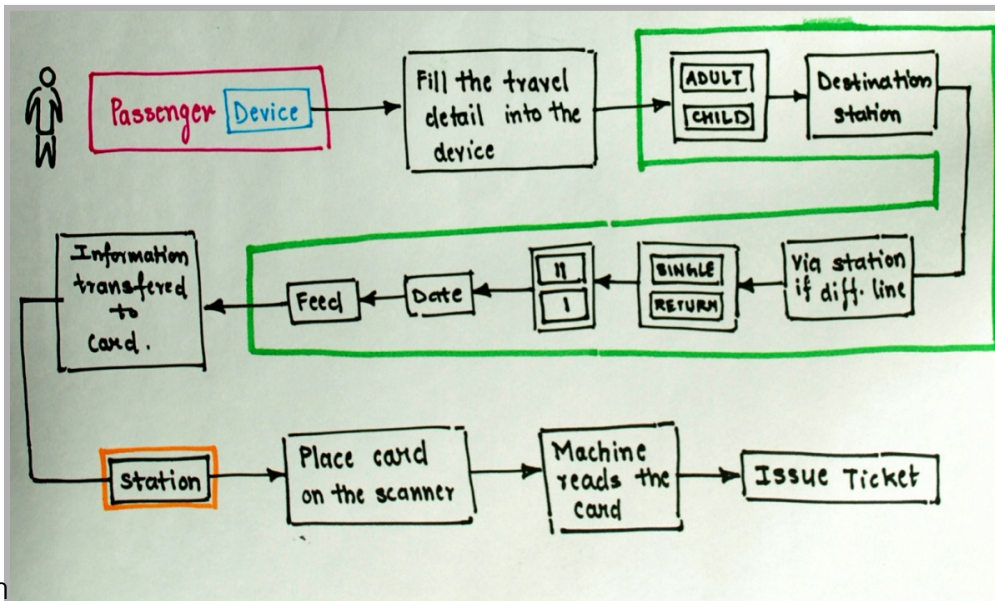 Passenger Device
Fill the travel
detail into the
device
ADULT
CHILD
Destination
station
Via station
if diff. line
SINGLE
RETURN
II
I
Date
Feed
Information
transfered
to
card.
Station
Place card
on the scanner
Machine
reads the
card
Issue Ticket
n